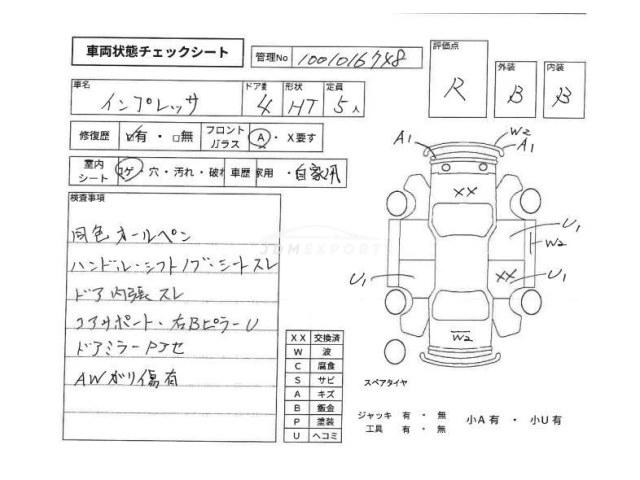 車両状態チェックシート
管理No 1001016748
評価点 R
外装 B
内装 B
車名 インプレッサ
ドア数 4
形状 HT
定員 5人
修復歴 ☑有 ・ □無
フロントガラス A ・ X要す
室内シート コゲ ・ 穴 ・ 汚れ ・ 破れ
車歴 家用 ・ 自家用
検査事項
同色オールペン
ハンドル・シフトノブ・シートスレ
ドア内張スレ
コアサポート・右Bピラー U
ドアミラー
AWガリ傷有
A1
W2
A1
XX
U1
W2
U1
XX
U1
W2
XX 交換済
W 波
C 腐食
S サビ
A キズ
B 鈑金
P 塗装
U ヘコミ
スペアタイヤ
ジャッキ 有 ・ 無
工具 有 ・ 無
小A有 ・ 小U有
JDMEXPORT